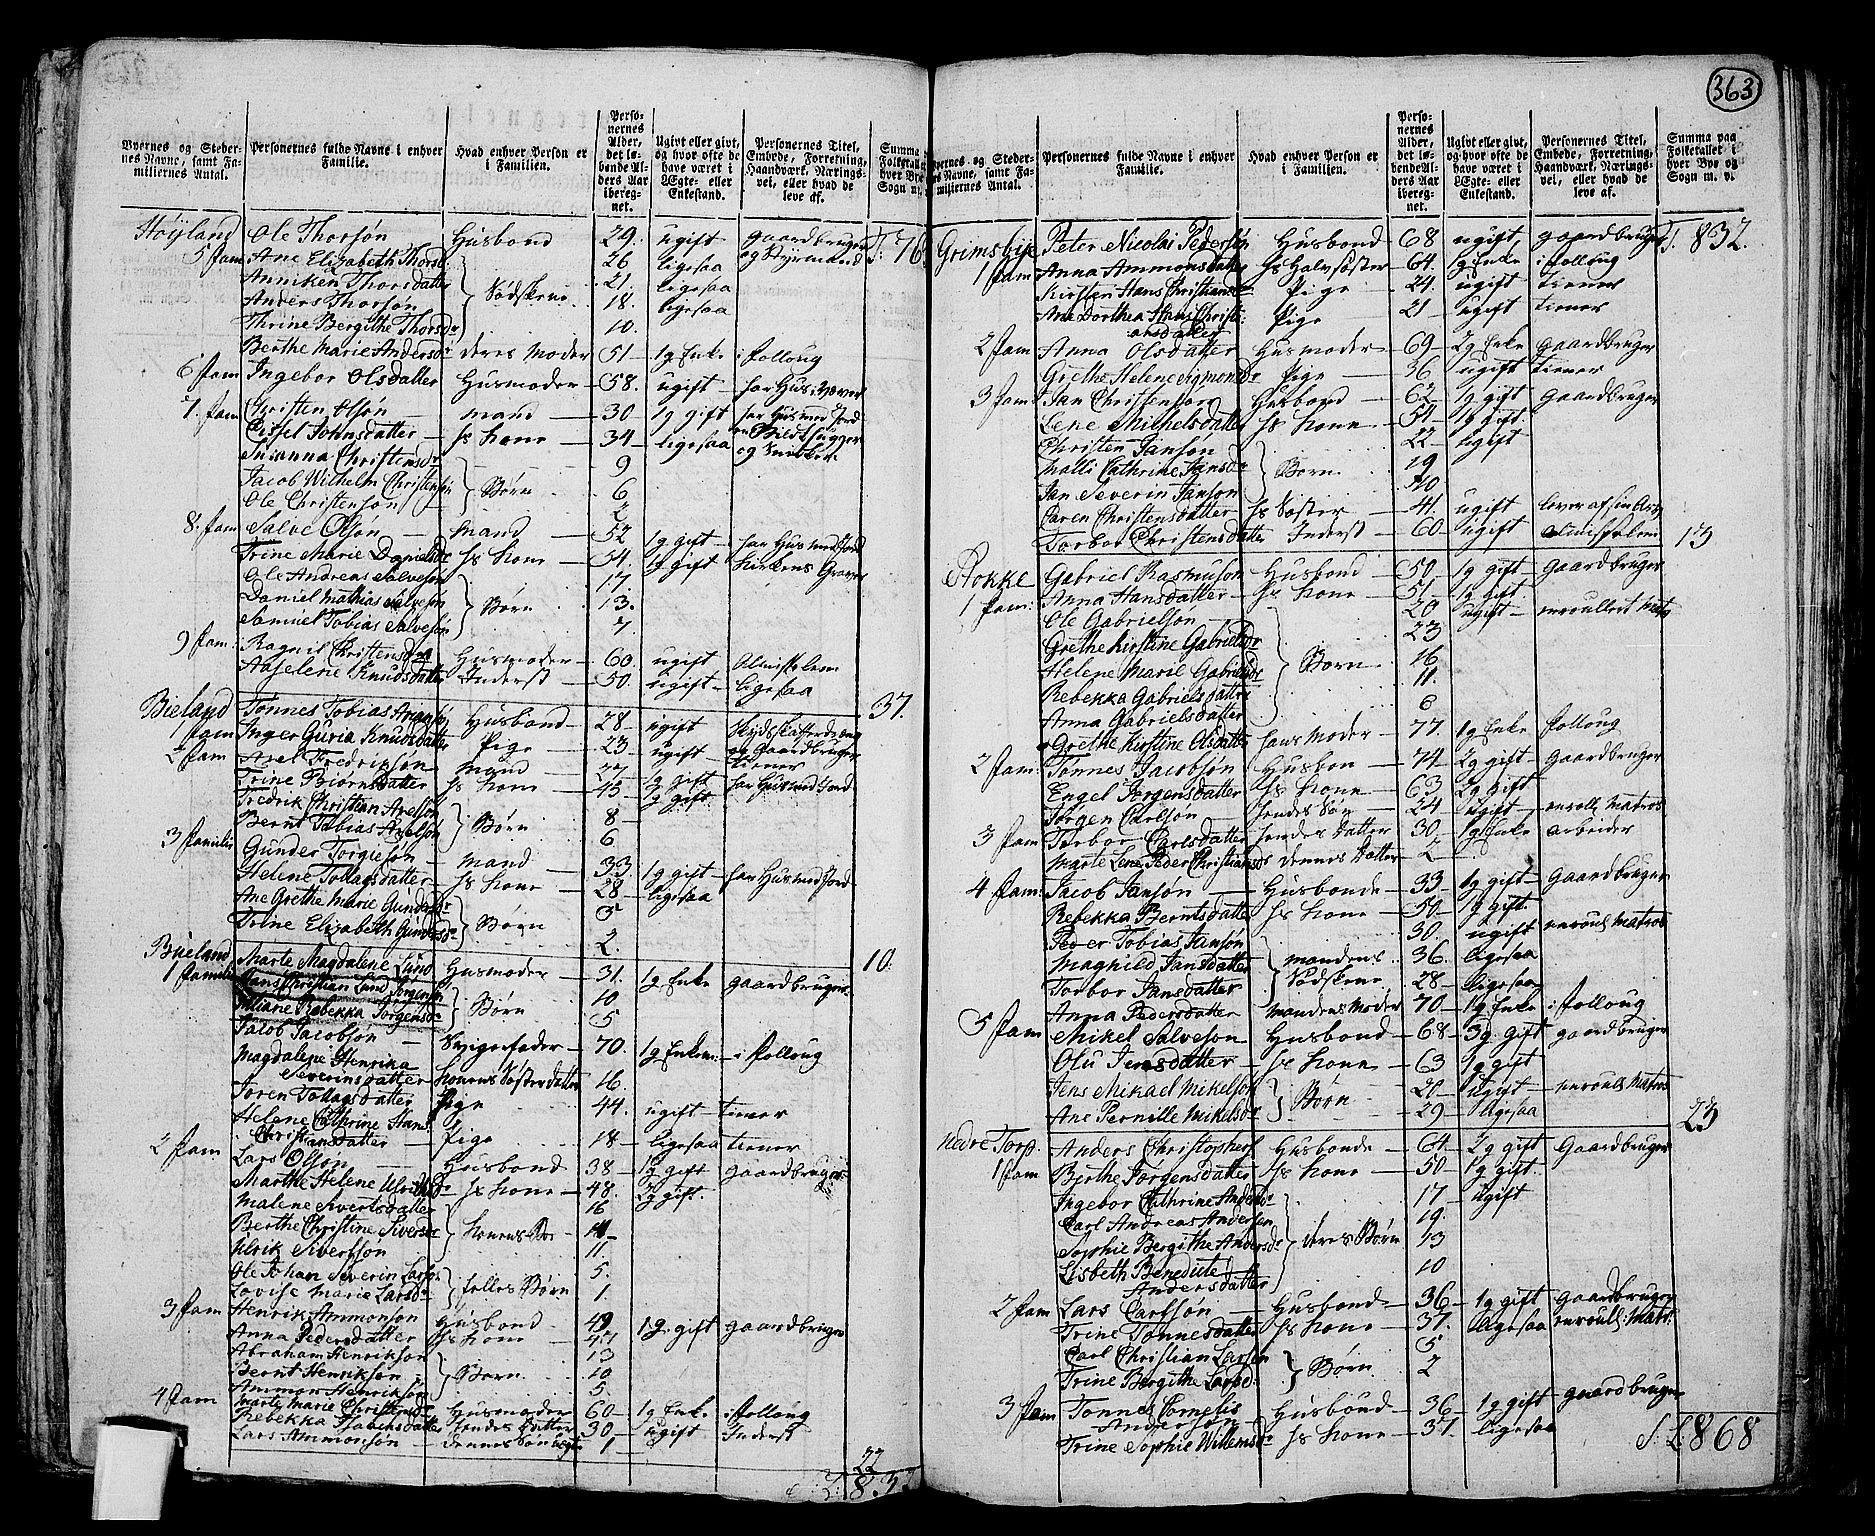 363
Byernes og Stedernes Navne, samt Familiernes Antal.
Personernes fulde Navne i enhver Familie.
Hvad enhver Person er i Familien.
Personernes Alder, det løbende Alders Aar iberegnet.
Ugivt eller givt, og hvor ofte de have været i Ægte- eller Enkestand.
Personernes Titel, Embede, Forretning, Haandværk, Næringsvei, eller hvad de leve af.
Summa Folketallet hver Bye Sogn m.
Høyland Ole Thorsøn Husbond 29. ugift gaardbruger T: 76
5 fam Ane Elizabeth Thorsd. 26 ligesaa og Styrmand
Anniken Thorsdatter } Sødskene 21. ligesaa
Anders Thorsøn 18. ligesaa
Thrine Bergithe Thorsdr 10.
Berthe Marie Andersdr deres Moder 51 1g Enke i folloug
6 fam Ingebor Olsdatter Husmoder 58. ugift har Hus i Væver
7. fam Christen Olsøn mand 30 1g gift har Hus med Jord
Cissel Johnsdatter hs Kone 34 ligesaa
Susanna Christensdr 9 og Snedker
Jacob Wilhelm Christensøn } Børn 6
Ole Christensøn 2
8. fam Salve Olsøn mand 52 1g gift har Hus med Jord
Trine Marie Danielsdr hs Kone 54. 1g gift Kirkens Graver
Ole Andreas Salvesøn 17.
Daniel Mathias Salvesøn } Børn 13.
Samuel Tobias Salvesøn 7
9 fam: Ragnil Christensdr Husmoder 60. ugift Almisselem
Aaselene Knudsdatter Inderst 50. ugift ligesaa 37.
Bieland Tønnes Tobias Husbond 28 ugift
1 fam Inger Guria Knudsdatter Pige 23 ugift og gaardbruger
2 fam Axel Fredriksøn mand 27 1g gift har Hus med Jord
Trine Biørnsdatter hs Kone 45 2g gift
Fredrik Christian Axelsøn } Børn 8
Bernt Tobias Axelsøn 6
3 familie Gunder Torgiesøn mand 33. 1g gift har Hus med Jord
Helene Tollagsdatter hs Kone 28 ligesaa
Ane Grethe Marie Gundersdr } Børn 5
Trine Elizabeth Gundersdr 2. 10.
Bieland Marte Magdalene Lund Husmoder 31. 1g Enke gaardbruger
1 familie Hans Christian Lund Jørgensøn } Børn 10
Juliane Rebekka Jørgensdr 5
Jacob Jacobsøn Svigerfader 70. 1g Enkem: i folloug
Magdalene Henrika
Severinsdatter Konens Søsterdatter 16.
Joren Tollagsdatter Pige 44. ugift tiener
Helene Cathrine Hans
Christiansdatter Pige 18 ligesaa tiener
2 fam Lars Olsøn Husbond 38 1g gift gaardbruger
Marthe Helene Ulriksdr hs Kone 48. 2g gift.
Malene Sivertsdatter 16
Berthe Christine Siversdr } Konens Bør 14
Ulrik Sivertsøn 11.
Ole Johan Severin Larsøn } felles Børn 5.
Lovise Marie Larsdr 1.
3 fam Henrik Ammonsøn Husbond 49 1g gift gaardbruger
Anna Pedersdatter hs Kone 47
Abraham Henriksøn 13
Bernt Henriksøn } Børn 10
Ammon Henriksøn 5.
4 fam Marte Marie Christensdr Husmoder 60 1g Enke i folloug
Rebekka Jacobsdatter hendes Datter 30 ugift Inderst
Lars Ammonsøn dennes Søn 1 22
Byernes og Stedernes Navne, samt Familiernes Antal.
Personernes fulde Navne i enhver Familie.
Hvad enhver Person er i Familien.
Personernes Alder, det løbende Alders Aar iberegnet.
Ugivt eller givt, og hvor ofte de have været i Ægte- eller Enkestand.
Personernes Titel, Embede, Forretning, Haandværk, Næringsvei, eller hvad de leve af.
Summa paa Folketallet i hver Bye og Sogn m. v.
Grimsbye Peter Nicolai Pedersøn Husbond 68 ugift gaardbruger T. 832.
1 fam Anna Ammonsdatter hs Halvsøster 64. 1g Enke i folloug
Kirsten Hans Christiansdr Pige 24. ugift tiener
Ane Dorthea Hans Christi-
ansdatter Pige 21 ugift tiener
2 fam Anna Olsdatter Husmoder 69 2g Enke gaardbruger
Grethe Helene Sigmondsdr Pige 36 ugift tiener
3 fam Jan Christensøn Husbond 62 1g gift gaardbruger
Lene Mithelsdatter hs Kone 54 1g gift
Christen Jansøn 22 ugift
Malli Cathrine Jansdr } Børn 19
Jan Severin Jansøn 10
Caren Christensdatter hs Søster 41. ugift
Torbor Christensdatter Inderst 60 ugift almisselem 13
Rokke Gabriel Rasmusøn Husbond 59 1g gift gaardbruger
1 fam: Anna Hansdatter hs Kone 51 1g gift
Ole Gabrielsøn 20 ugift enroullert Matr
Grethe Kirstine Gabrielsdr 23
Helene Marie Gabrielsdr } Børn 16
Rebekka Gabrielsdatter 11
Anna Gabrielsdatter 6
Grethe Kirstine Olsdatter hans Moder 77. 1g Enke folloug
2 fam: Tønnes Jacobsøn Husbon 74 2g gift gaardbruger
Engel Jørgensdatter hs Kone 63 2g gift
Jørgen Carlsøn hendes Søn 24 ugift enroll Matros
3 fam Torbor Carlsdatter hendes Datter 30 1g Enke arbeider
Marte Lene Peder Christiansdr dennes Datter 2
4 fam: Jacob Jansøn Husbonde 33 1g gift gaardbruger
Rebekka Berntsdatter hs Kone 50 1g gift.
Peder Tobias Jansøn 30. ugift enroul Matros
Maghild Jansdatter } mandens Sødskene 36. ligesaa
Torbor Jansdatter 28 ligesaa
Anna Pedersdatter Mandens Moder 70 1g Enke i folloug
5 fam Mikel Salvesøn Husbond 68 3g gift gaardbruger
Olu Jensdatter hs Kone 63 1g gift
Jens Mikael Mikelsøn } Børn 20 ugift enroull Matros
Ane Pernille Mikelsdr 29 ligesaa 23
nedre Torp. Anders Christophers Husbonde 64. 2g gift Gaardbruger
1 fam Berthe Jørgensdatter hs Kone 50 1g gift
Ingebor Cathrine Andersdr 17 ugift
Carl Andreas Andersen 19.
Sophie Bergithe Andersdr } deres Børn 13
Lisbeth Benedicte
Andersdatter 10
2 fam Lars Carlsøn Husbond 36 1g gift gaardbruger
Trine Tønnesdatter hs Kone 37. ligesaa enroull: Matr:
Carl Christian Larsen } Børn 5
Trine Bergithe Larsd: 2
3 fam Tønnes Cornelis
Andersøn Husbond 36 1g gift gaardbruger
Trine Sophie Willemsdr hs Kone 37 ligesaa S: L: 868